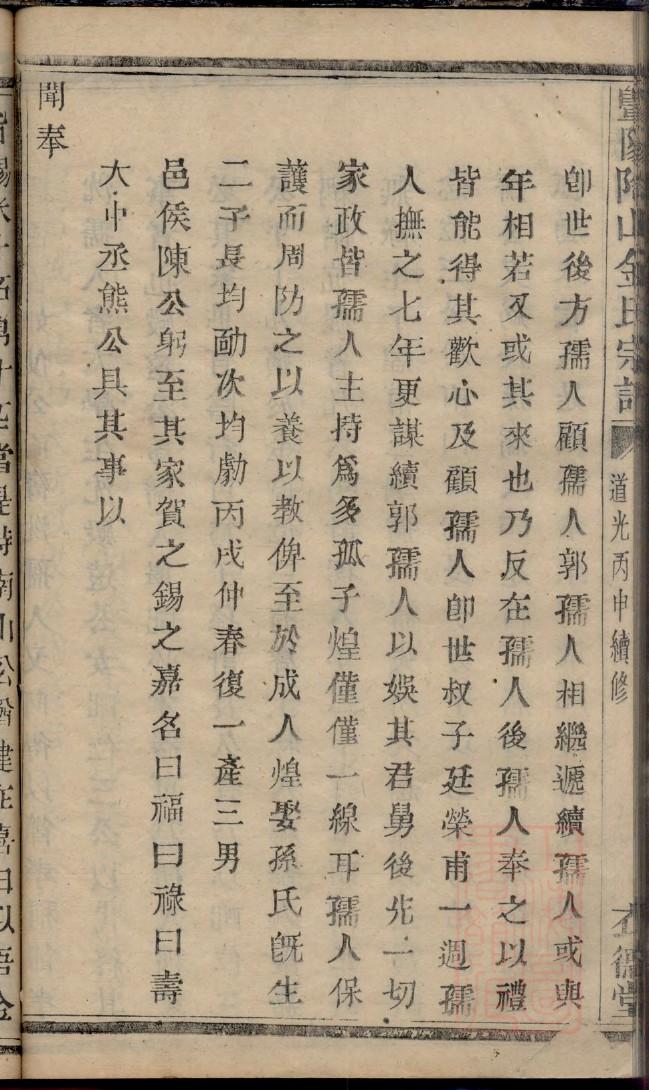 暨陽陶山金氏宗譜 道光丙申續修
卽世後方孺人顧孺人郭孺人相繼遞續孺人或與
年相若又或其來也乃反在孺人後孺人奉之以禮
皆能得其歡心及顧孺人卽世叔子廷榮甫一週孺
人撫之七年更謀續郭孺人以娛其君舅後先一切
家政皆孺人主持爲多孤子煌僅僅一線耳孺人保
護而周防之以養以敎俾至於成人煌娶孫氏旣生
二子長均勔次均勮丙戌仲春復一產三男
邑侯陳公躬至其家賀之錫之嘉名曰福曰祿曰壽
大中丞熊公具其事以
聞奉